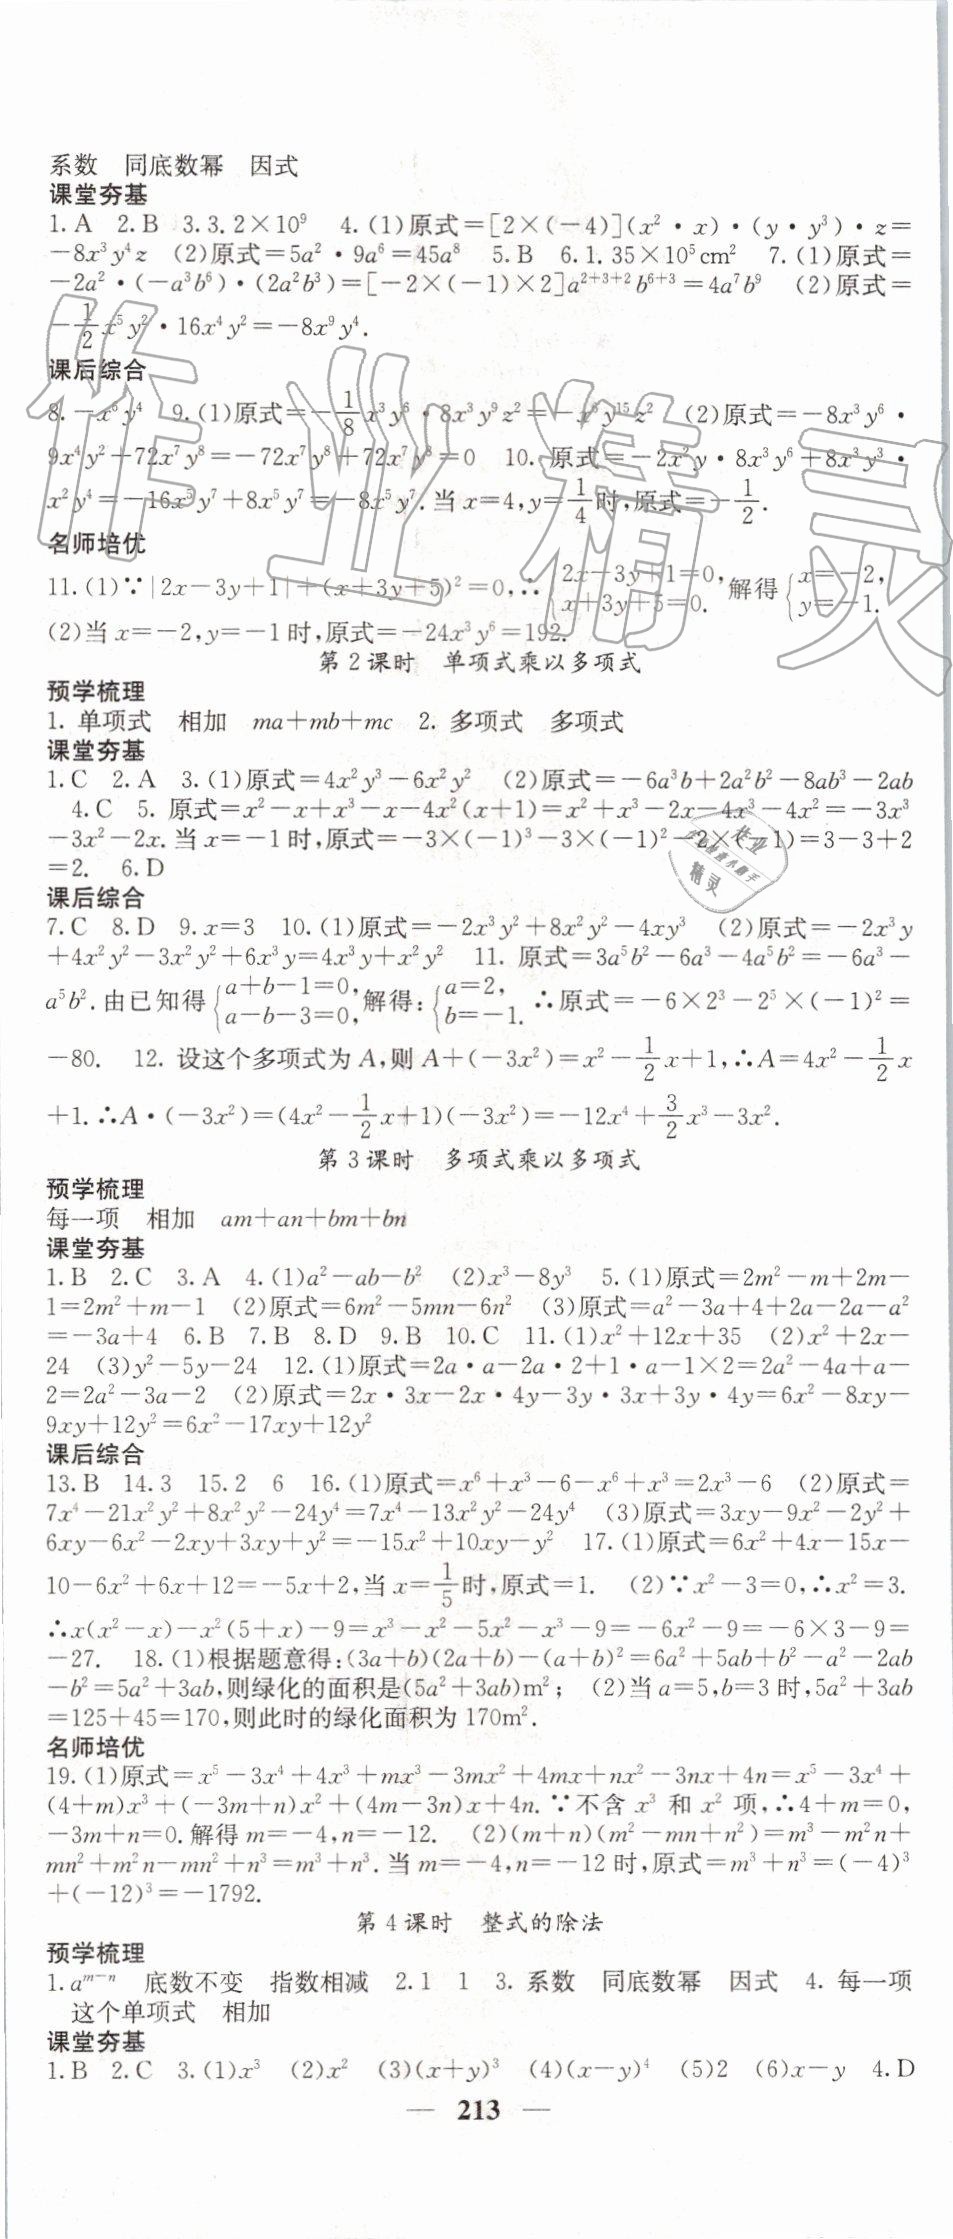 系数　同底数幂　因式
课堂夯基
1. A　2. B　3. 3.2×10⁹　4. (1)原式=[2×(-4)](x²·x)·(y·y³)·z=
-8x³y⁴z　(2)原式=5a²·9a⁶=45a⁸　5. B　6. 1.35×10⁵cm²　7. (1)原式=
-2a²·(-a³b⁶)·(2a²b³)=[-2×(-1)×2]a²⁺³⁺²b⁶⁺³=4a⁷b⁹　(2)原式=
-1/2x⁵y²·16x⁴y²=-8x⁹y⁴.
课后综合
8. -x⁶y⁴　9. (1)原式=-1/8x³y⁶·8x³y⁹z²=-x⁶y¹⁵z²　(2)原式=-8x³y⁶·
9x⁴y²+72x⁷y⁸=-72x⁷y⁸+72x⁷y⁸=0　10. 原式=-2x²y·8x³y⁶+8x³y³·
x²y⁴=-16x⁵y⁷+8x⁵y⁷=-8x⁵y⁷.当x=4,y=1/4时,原式=-1/2.
名师培优
11. (1)∵|2x-3y+1|+(x+3y+5)²=0,∴{2x-3y+1=0, x+3y+5=0.解得{x=-2, y=-1.
(2)当x=-2,y=-1时,原式=-24x³y⁶=192.
第2课时　单项式乘以多项式
预学梳理
1. 单项式　相加　ma+mb+mc　2. 多项式　多项式
课堂夯基
1. C　2. A　3. (1)原式=4x²y³-6x²y²　(2)原式=-6a³b+2a²b²-8ab³-2ab
4. C　5. 原式=x²-x+x³-x-4x²(x+1)=x²+x³-2x-4x³-4x²=-3x³
-3x²-2x.当x=-1时,原式=-3×(-1)³-3×(-1)²-2×(-1)=3-3+2
=2.　6. D
课后综合
7. C　8. D　9. x=3　10. (1)原式=-2x³y²+8x²y²-4xy³　(2)原式=-2x³y
+4x²y²-3x²y²+6x³y=4x³y+x²y²　11. 原式=3a⁵b²-6a³-4a⁵b²=-6a³-
a⁵b².由已知得{a+b-1=0, a-b-3=0,解得:{a=2, b=-1.∴原式=-6×2³-2⁵×(-1)²=
-80.　12. 设这个多项式为A,则A+(-3x²)=x²-1/2x+1,∴A=4x²-1/2x
+1.∴A·(-3x²)=(4x²-1/2x+1)(-3x²)=-12x⁴+3/2x³-3x².
第3课时　多项式乘以多项式
预学梳理
每一项　相加　am+an+bm+bn
课堂夯基
1. B　2. C　3. A　4. (1)a²-ab-b²　(2)x³-8y³　5. (1)原式=2m²-m+2m-
1=2m²+m-1　(2)原式=6m²-5mn-6n²　(3)原式=a²-3a+4+2a-2a-a²
=-3a+4　6. B　7. B　8. D　9. B　10. C　11. (1)x²+12x+35　(2)x²+2x-
24　(3)y²-5y-24　12. (1)原式=2a·a-2a·2+1·a-1×2=2a²-4a+a-
2=2a²-3a-2　(2)原式=2x·3x-2x·4y-3y·3x+3y·4y=6x²-8xy-
9xy+12y²=6x²-17xy+12y²
课后综合
13. B　14. 3　15. 2　6　16. (1)原式=x⁶+x³-6-x⁶+x³=2x³-6　(2)原式=
7x⁴-21x²y²+8x²y²-24y⁴=7x⁴-13x²y²-24y⁴　(3)原式=3xy-9x²-2y²+
6xy-6x²-2xy+3xy+y²=-15x²+10xy-y²　17. (1)原式=6x²+4x-15x-
10-6x²+6x+12=-5x+2,当x=1/5时,原式=1.　(2)∵x²-3=0,∴x²=3.
∴x(x²-x)-x²(5+x)-9=x³-x²-5x²-x³-9=-6x²-9=-6×3-9=
-27.　18. (1)根据题意得:(3a+b)(2a+b)-(a+b)²=6a²+5ab+b²-a²-2ab
-b²=5a²+3ab,则绿化的面积是(5a²+3ab)m²;　(2)当a=5,b=3时,5a²+3ab
=125+45=170,则此时的绿化面积为170m².
名师培优
19. (1)原式=x⁵-3x⁴+4x³+mx³-3mx²+4mx+nx²-3nx+4n=x⁵-3x⁴+
(4+m)x³+(-3m+n)x²+(4m-3n)x+4n.∵不含x³和x²项,∴4+m=0,
-3m+n=0.解得m=-4,n=-12.　(2)(m+n)(m²-mn+n²)=m³-m²n+
mn²+m²n-mn²+n³=m³+n³.当m=-4,n=-12时,原式=m³+n³=(-4)³
+(-12)³=-1792.
第4课时　整式的除法
预学梳理
1. aᵐ⁻ⁿ　底数不变　指数相减　2. 1　1　3. 系数　同底数幂　因式　4. 每一项
这个单项式　相加
课堂夯基
1. B　2. C　3. (1)x³　(2)x²　(3)(x+y)³　(4)(x-y)⁴　(5)2　(6)x-y　4. D
— 213 —
作业精灵